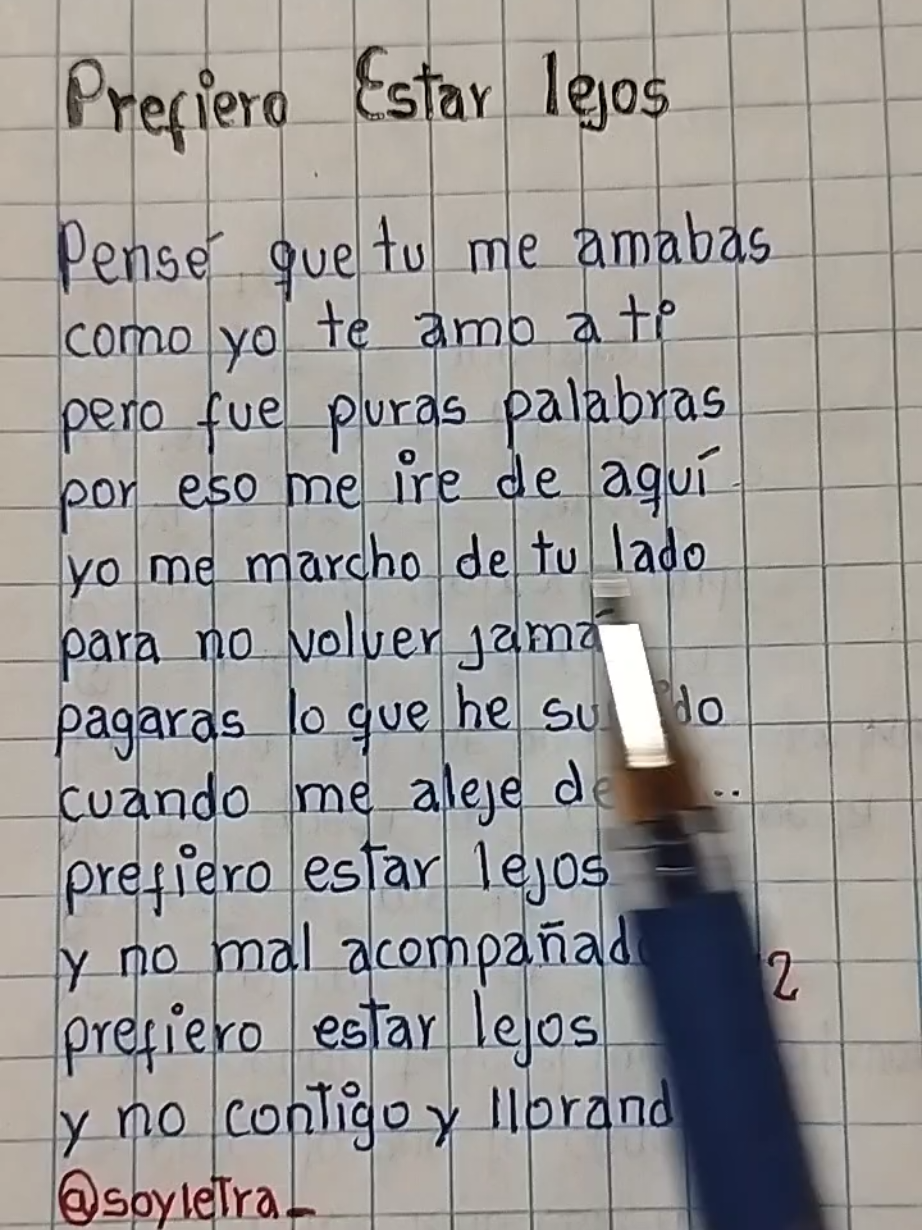 Prefiero Estar lejos
Pensé que tu me amabas
como yo te amo a ti
pero fue puras palabras
por eso me ire de aquí
yo me marcho de tu lado
para no volver
pagaras lo que he
cuando me aleje
prefiero estar lejos
y no mal
2
prefiero estar lejos
y no contigo y
@soyletra_